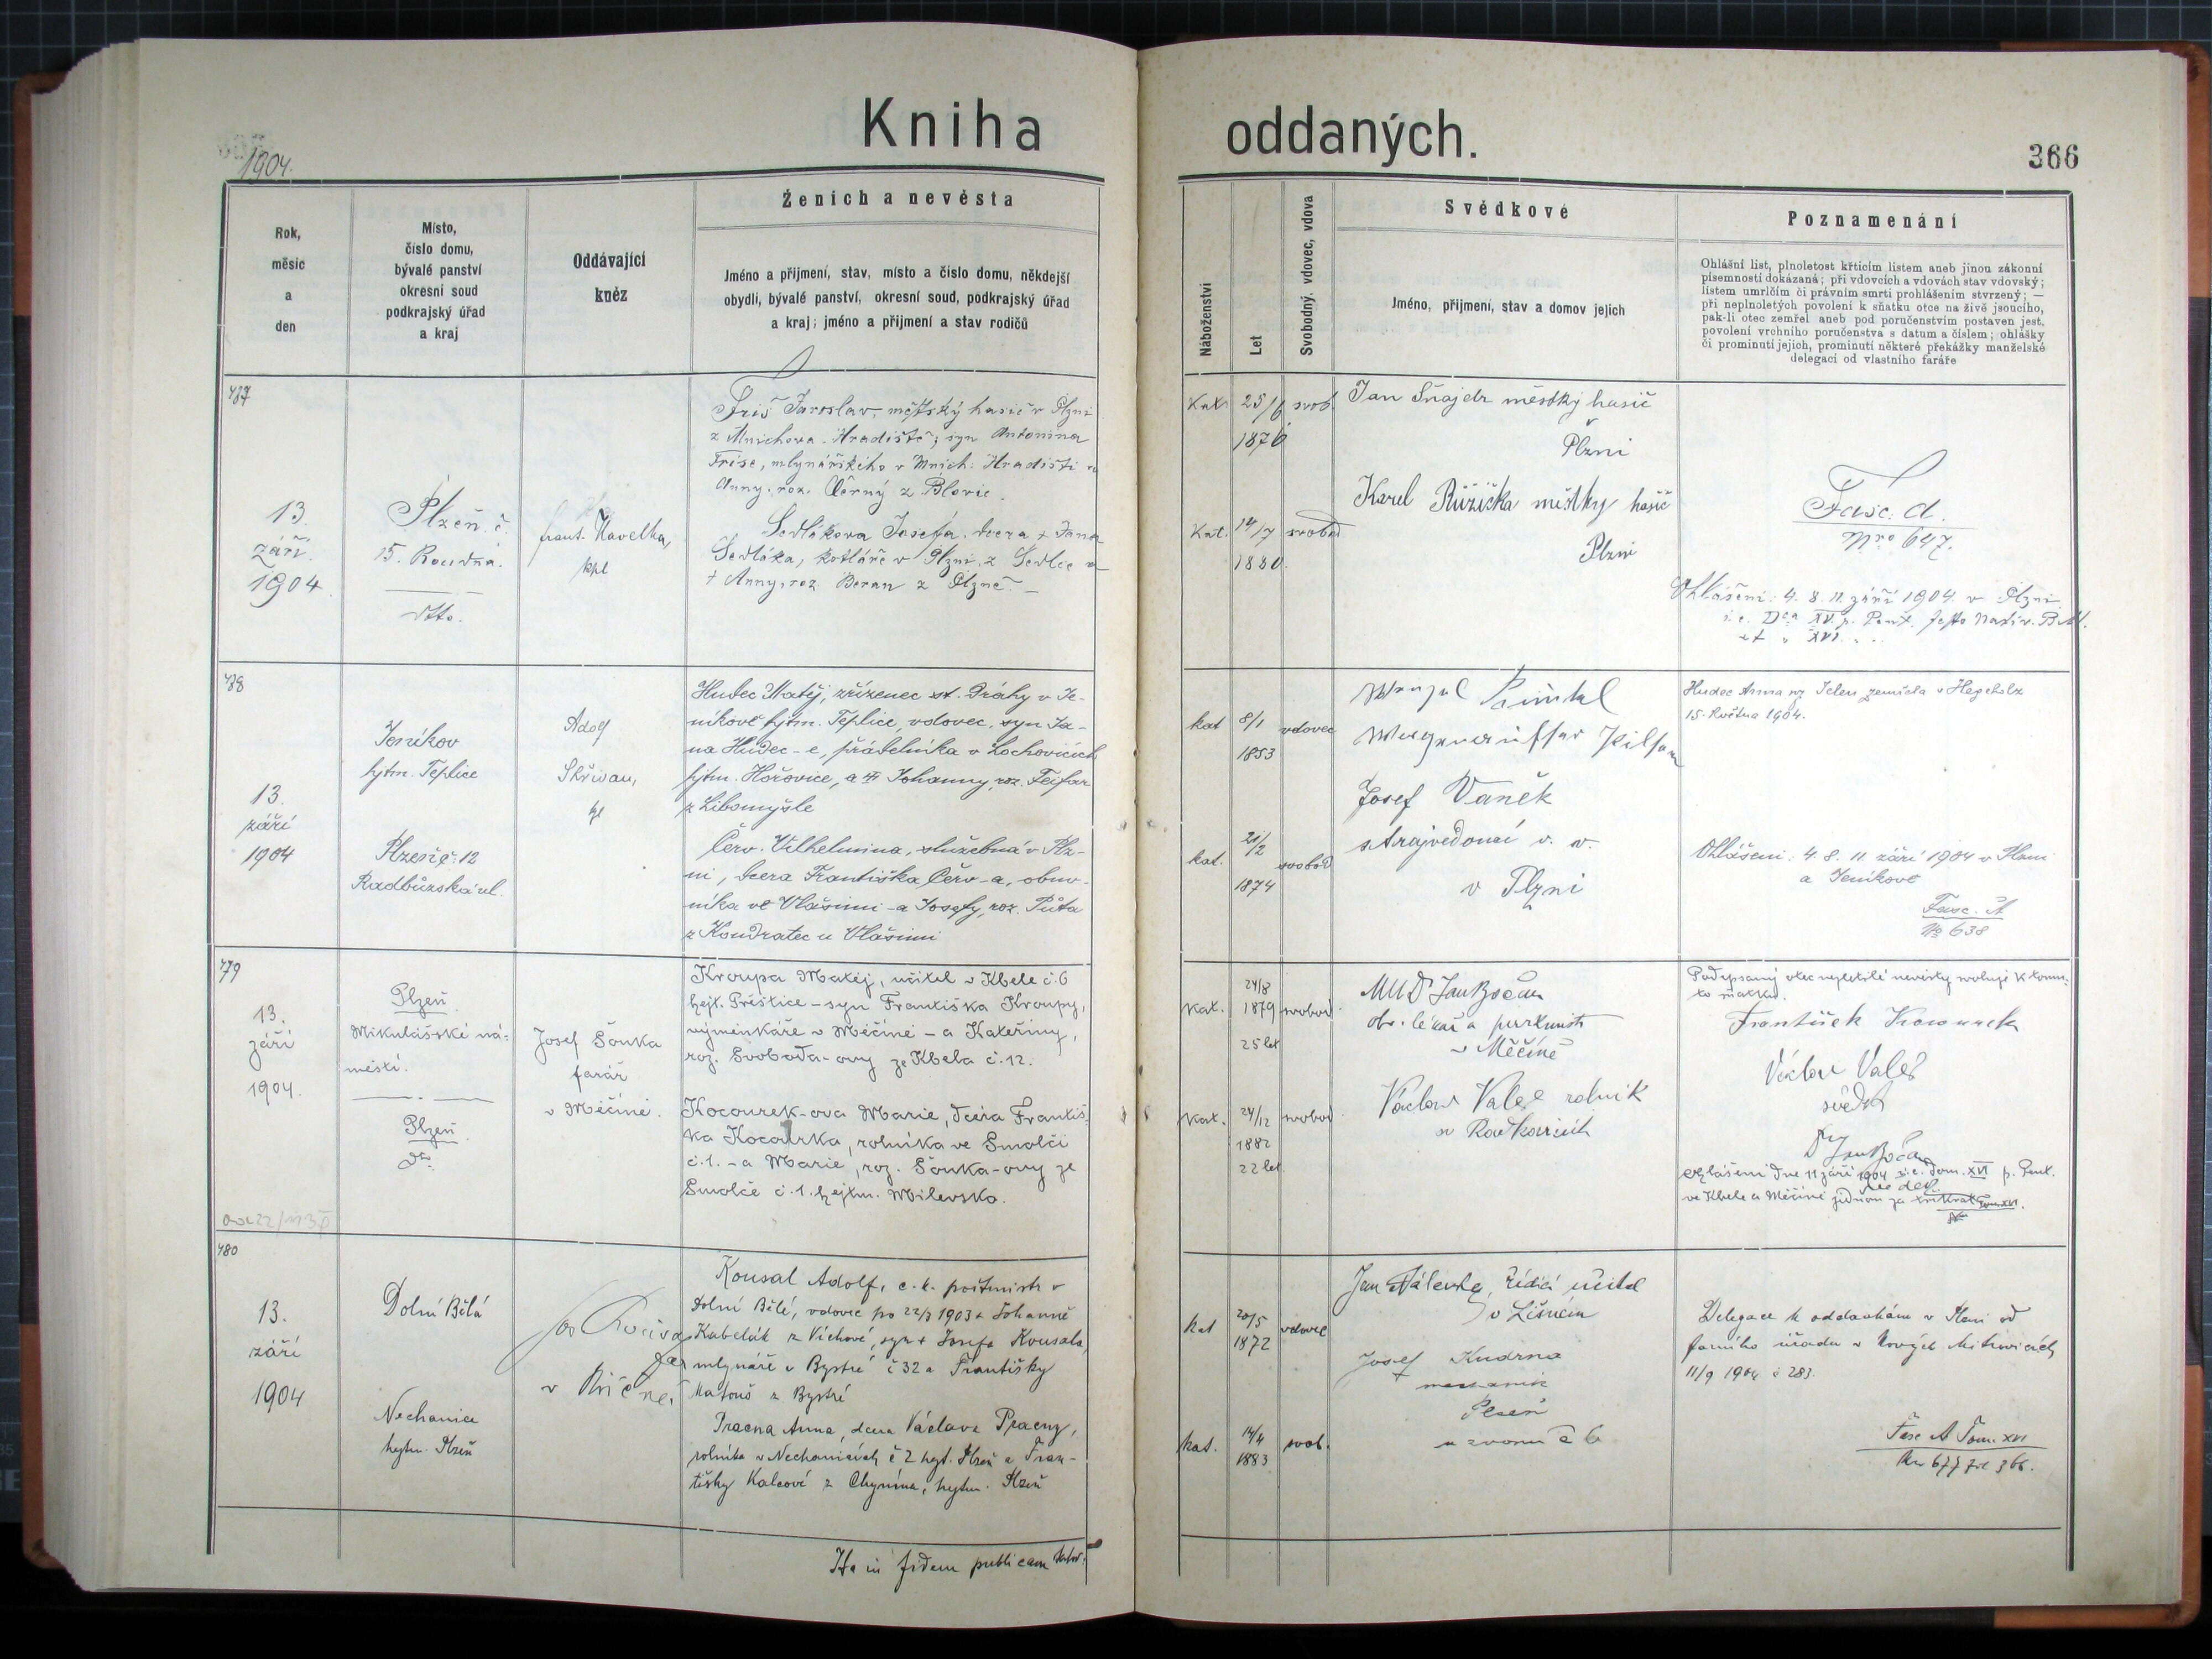 Kniha
oddaných.
1904.
366
Rok,
měsíc
a
den
Místo,
číslo domu,
bývalé panství
okresní soud
podkrajský úřad
a kraj
Oddávající
kněz
Ženich a nevěsta
Jméno a přijmení, stav, místo a číslo domu, někdejší
obydlí, bývalé panství, okresní soud, podkrajský úřad
a kraj; jméno a přijmení a stav rodičů
Náboženství
Let
Svobodný, vdovec, vdova
Svědkové
Jméno, přijmení, stav a domov jejich
Poznamenání
Ohlášní list, plnoletost křticím listem aneb jinou zákonní
písemností dokázaná; při vdovcích a vdovách stav vdovský;
listem umrlčím či právním smrti prohlášením stvrzený; —
při neplnoletých povolení k sňatku otce na živě jsoucího,
pak-li otec zemřel aneb pod poručenstvím postaven jest,
povolení vrchního poručenstva s datum a číslem; ohlášky
či prominutí jejich, prominutí některé překážky manželské
delegací od vlastního faráře
13.
září
1904
Plzeň č.
15. Roudná.
dtto.
Frant. Havelka,
kpl
Friš Jaroslav, městský hasič v Plzni
z Mnichova-Hradiště; syn Antonína
Friše, mlynářského v Mnich. Hradišti a
Anny, roz. Černý z Blovic.
Sedlákova Josefa, dcera + Jana
Sedláka, kotláře v Plzni z Sedlce a
+ Anny, roz. Beran z Plzně. —
Kat. 25/6 svob.
1876
Kat. 14/7 svobod
1880
Jan Šnajdr městký hasič
Plzni
Karel Růžička městky hasič
Plzni
Fasc. A.
Nro 647.
Ohlášeni: 4. 8. 11. září 1904 v Plzni
i. e. Dca XV. p. Pent. festo Nativ. B.M.
et " XVI. " "
13.
září
1904
Jeníkov
hjtm. Teplice
Plzeň č. 12
Radbůzská ul.
Adolf
Skřivan,
kpl
Hudec Matěj, zřízenec st. dráhy v Je-
níkově hjtm. Teplice, vdovec, syn Ja-
na Hudec-e, přádelníka v Lochovicích
hjtm. Hořovice, a Johanny, roz. Fejfar
z Libomyšle
Červ. Vilhelmina, služebná v Plz-
ni, dcera Františka Červ-a, obuv-
níka ve Vlašimi a Josefy, roz. Půta
z Kondratec u Vlašimi
kat 8/1 vdovec
1853
kat. 21/2 svobod
1874
Wenzel
Pilsen
Josef Vaněk
v Plzni
Hudec Anna roz Jelen zemřela v Hegeholz
15. května 1904.
Ohlášeni: 4. 8. 11. září 1904 v Plzni
a Jeníkově
Fasc. A
No 638
13.
září
1904.
Plzeň
Mikulášské ná-
městí.
Plzeň
dto
Josef Šonka
farář
v Měčíně.
Kroupa Matěj, učitel v Kbele č. 6
hejt. Přeštice – syn Františka Kroupy,
výminkáře v Měčíně – a Kateřiny,
roz. Svoboda-ovy ze Kbela č. 12.
Kocourek-ova Marie, dcera Františ-
ka Kocourka, rolníka ve Smolči
č. 1. – a Marie, roz. Šonka-ovy ze
Smolče č. 1. hejtm. Milevsko.
kat. 24/8 svobod
1879
25 let
kat. 24/12 svobod
1882
22 let
MUDr Jan
obv. lékař a purkmistr
v Měčíně
Václav Valeš rolník
v Radkovicích
Podepsaný otec nezletilé nevěsty svoluje k tomu-
to sňatku.
František Kocourek
Václav Valeš
svědek
Ohlášeni dne 11 září 1904 i. e. Dom. XVI p. Pent.
ve Kbele a Měčíně jednou za třikrát
480
13.
září
1904
Dolní Bělá
Nechanice
hejtm. Plzeň
Kousal Adolf, c. k. poštmistr v
Dolní Bělé, vdovec po 22/3 1903 + Johanně
Kubelák z Víchové, syn + Josefa Kousala,
mlynáře v Bystré č 32 a Františky
Matouš z Bystré
Pracna Anna, dcera Václava Pracny,
rolníka v Nechanicích č 2 hejt. Plzeň a Fran-
tišky Kalcové z Chynína, hejtm. Plzeň
Ita in fidem publicam
kat 20/5 vdovec
1872
kat. 14/4 svob.
1883
Jan Války, řídící učitel
Josef Kudrna
mechanik
Plzeň
u zvonu č 6
Delegace k oddavkám v Plzni od
farního úřadu v Nových Mitrovicích
11/9 1904 č 283.
Fasc A Tom. XVI